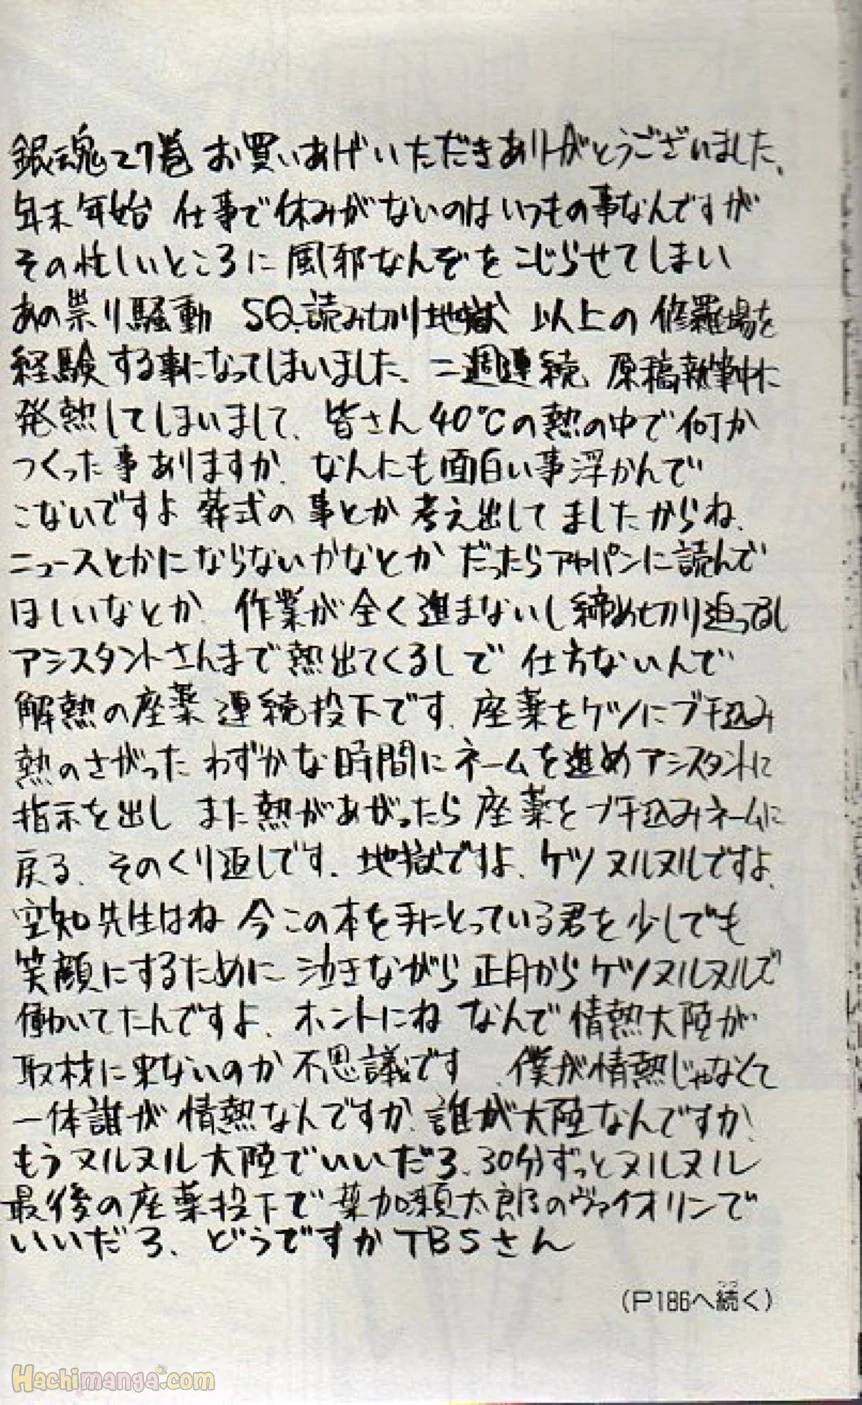 銀魂27巻 お買いあげいただきありがとうございました、
年末年始 仕事で休みがないのはいつもの事なんですが
その忙しいところに 風邪なんぞを こじらせてしまい
あの祟り騒動 SQ読み切り地獄 以上の 修羅場を
経験する事になってしまいました、二週連続 原稿執筆中に
発熱してしまいまして、皆さん40℃の熱の中で何か
つくった事ありますか、なんにも面白い事浮かんで
こないですよ 葬式の事とか 考え出してましたからね、
ニュースとかにならないかなとか だったらアナパンに読んで
ほしいなとか、作業が全く進まないし締め切り迫ってるし
アシスタントさんまで熱出てくるしで 仕方ないんで
解熱の座薬 連続投下です、座薬をケツにブチ込み
熱のさがった わずかな時間にネームを進めアシスタントに
指示を出し また熱があがったら座薬をブチ込みネームに
戻る、そのくり返しです、地獄ですよ、ケツヌルヌルですよ、
空知先生はね 今この本を手にとっている君を少しでも
笑顔にするために 泣きながら 正月からケツヌルヌルで
働いてたんですよ、ホントにね なんで情熱大陸が
取材に来ないのか不思議です、僕が情熱じゃなくて
一体誰が情熱なんですか、誰が大陸なんですか、
もうヌルヌル大陸でいいだろ、30分ずっとヌルヌル
最後の座薬投下で葉加瀬太郎のヴァイオリンで
いいだろ、どうですかTBSさん
(P186へ続く)
つづ
Hachimanga.com